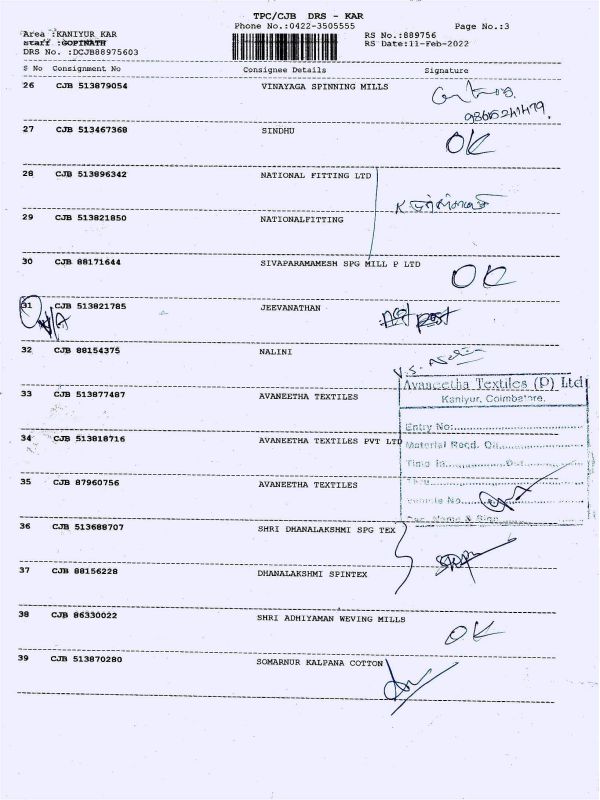 TPC/CJB DRS - KAR
Phone No.:0422-3505555 Page No.:3
Area :KANIYUR KAR RS No.:889756
Staff :GOPINATH RS Date:11-Feb-2022
DRS No. :DCJB88975603
S No Consignment No Consignee Details Signature
26 CJB 513879054 VINAYAGA SPINNING MILLS
27 CJB 513467368 SINDHU OK
28 CJB 513896342 NATIONAL FITTING LTD
29 CJB 513821850 NATIONALFITTING
30 CJB 88171644 SIVAPARAMAMESH SPG MILL P LTD OK
31 CJB 513821785 JEEVANATHAN
32 CJB 88154375 NALINI
V.S.
Avaneetha Textiles (P) Ltd
Kaniyur, Coimbatore.
33 CJB 513877487 AVANEETHA TEXTILES
Entry No:
34 CJB 513818716 AVANEETHA TEXTILES PVT LTD
Material Recd. On
Time In Out
35 CJB 87960756 AVANEETHA TEXTILES
Vehicle No.
36 CJB 513688707 SHRI DHANALAKSHMI SPG TEX
37 CJB 88156228 DHANALAKSHMI SPINTEX
38 CJB 86330022 SHRI ADHIYAMAN WEVING MILLS OK
39 CJB 513870280 SOMARNUR KALPANA COTTON